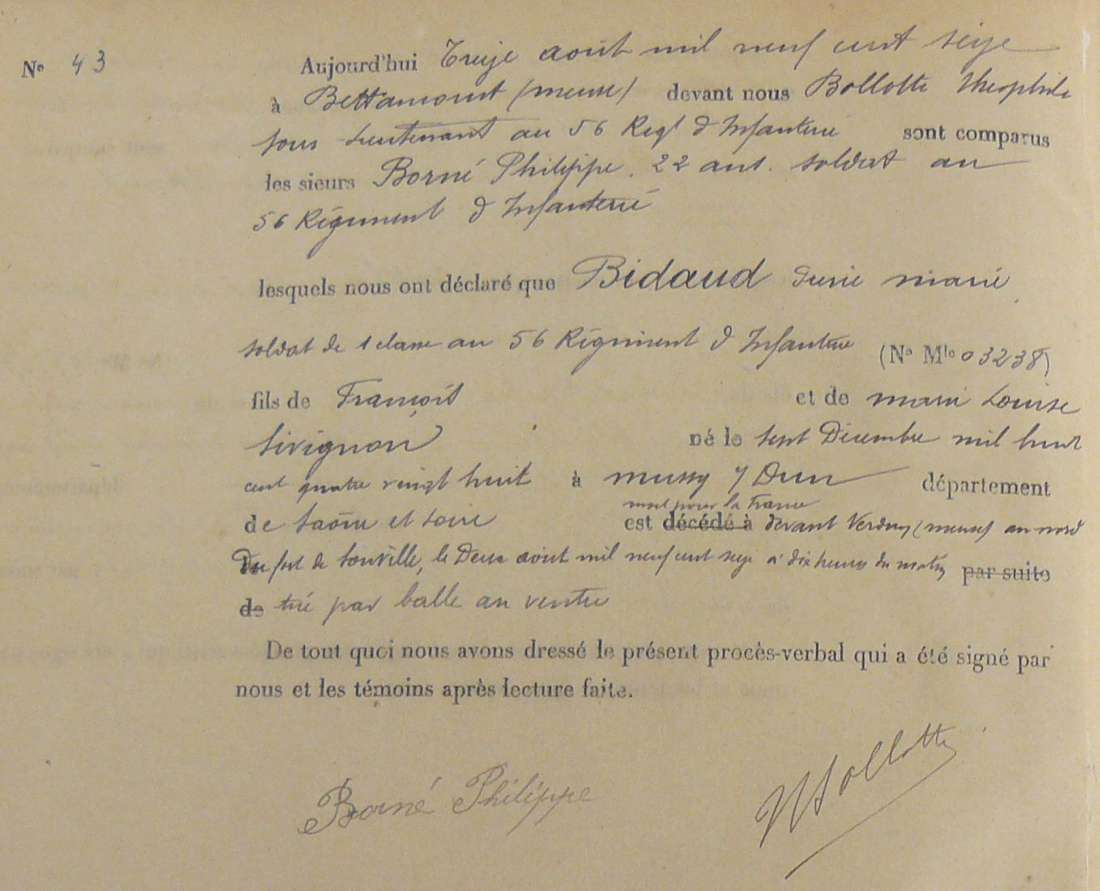 N° 43
Aujourd'hui Treize août mil neuf cent seize
à Bettamont (meuse) devant nous Bollotte Théophile
sous-Lieutenant au 56 Regt d'Infanterie sont comparus
les sieurs Borné Philippe. 22 ans. soldat au
56 Régiment d'Infanterie
lesquels nous ont déclaré que Bidaud marie
soldat de 1 classe au 56 Régiment d'Infanterie (N° Mle 03238)
fils de François et de marie Louise
Sivignon né le sept Décembre mil huit
cent quatre vingt huit à mussy s/ Dun département
de Saône et Loire est décédé à mort pour la France devant Verdun (meuse) au nord
Du fort de Souville, le Deux août mil neuf cent seize à dix heures du matin par suite
de tué par balle au ventre
De tout quoi nous avons dressé le présent procès-verbal qui a été signé par
nous et les témoins après lecture faite.
Borné Philippe
Bollotte